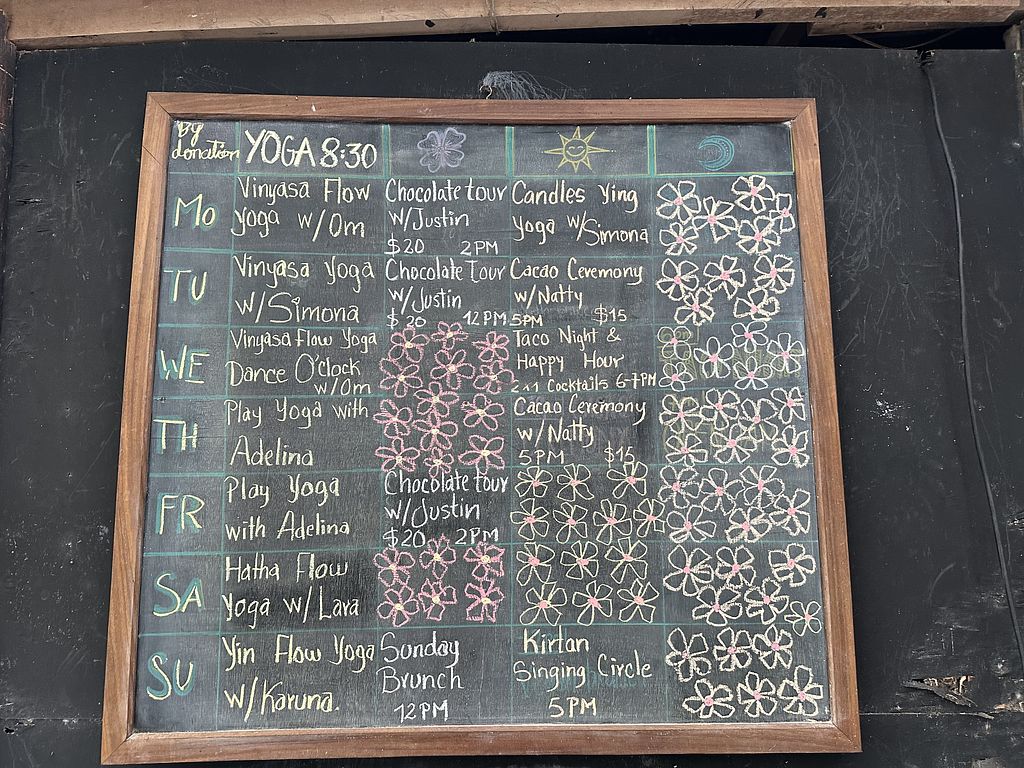 By
donation
YOGA 8:30
MO
Vinyasa Flow
yoga w/Om
Chocolate tour
w/Justin
$20 2PM
Candles Ying
yoga w/Simona
TU
Vinyasa Yoga
w/Simona
Chocolate Tour
w/Justin
$20 12PM
Cacao Ceremony
w/Natty
5PM $15
WE
Vinyasa Flow Yoga
Dance O'clock
w/Om
Taco Night &
Happy Hour
2x1 Cocktails 6-7PM
TH
Play Yoga with
Adelina
Cacao Ceremony
w/Natty
5PM $15
FR
Play Yoga
with Adelina
Chocolate tour
w/Justin
$20 2PM
SA
Hatha Flow
Yoga w/Lara
SU
Yin Flow Yoga
w/Karuna.
Sunday
Brunch
12PM
Kirtan
Singing Circle
5PM